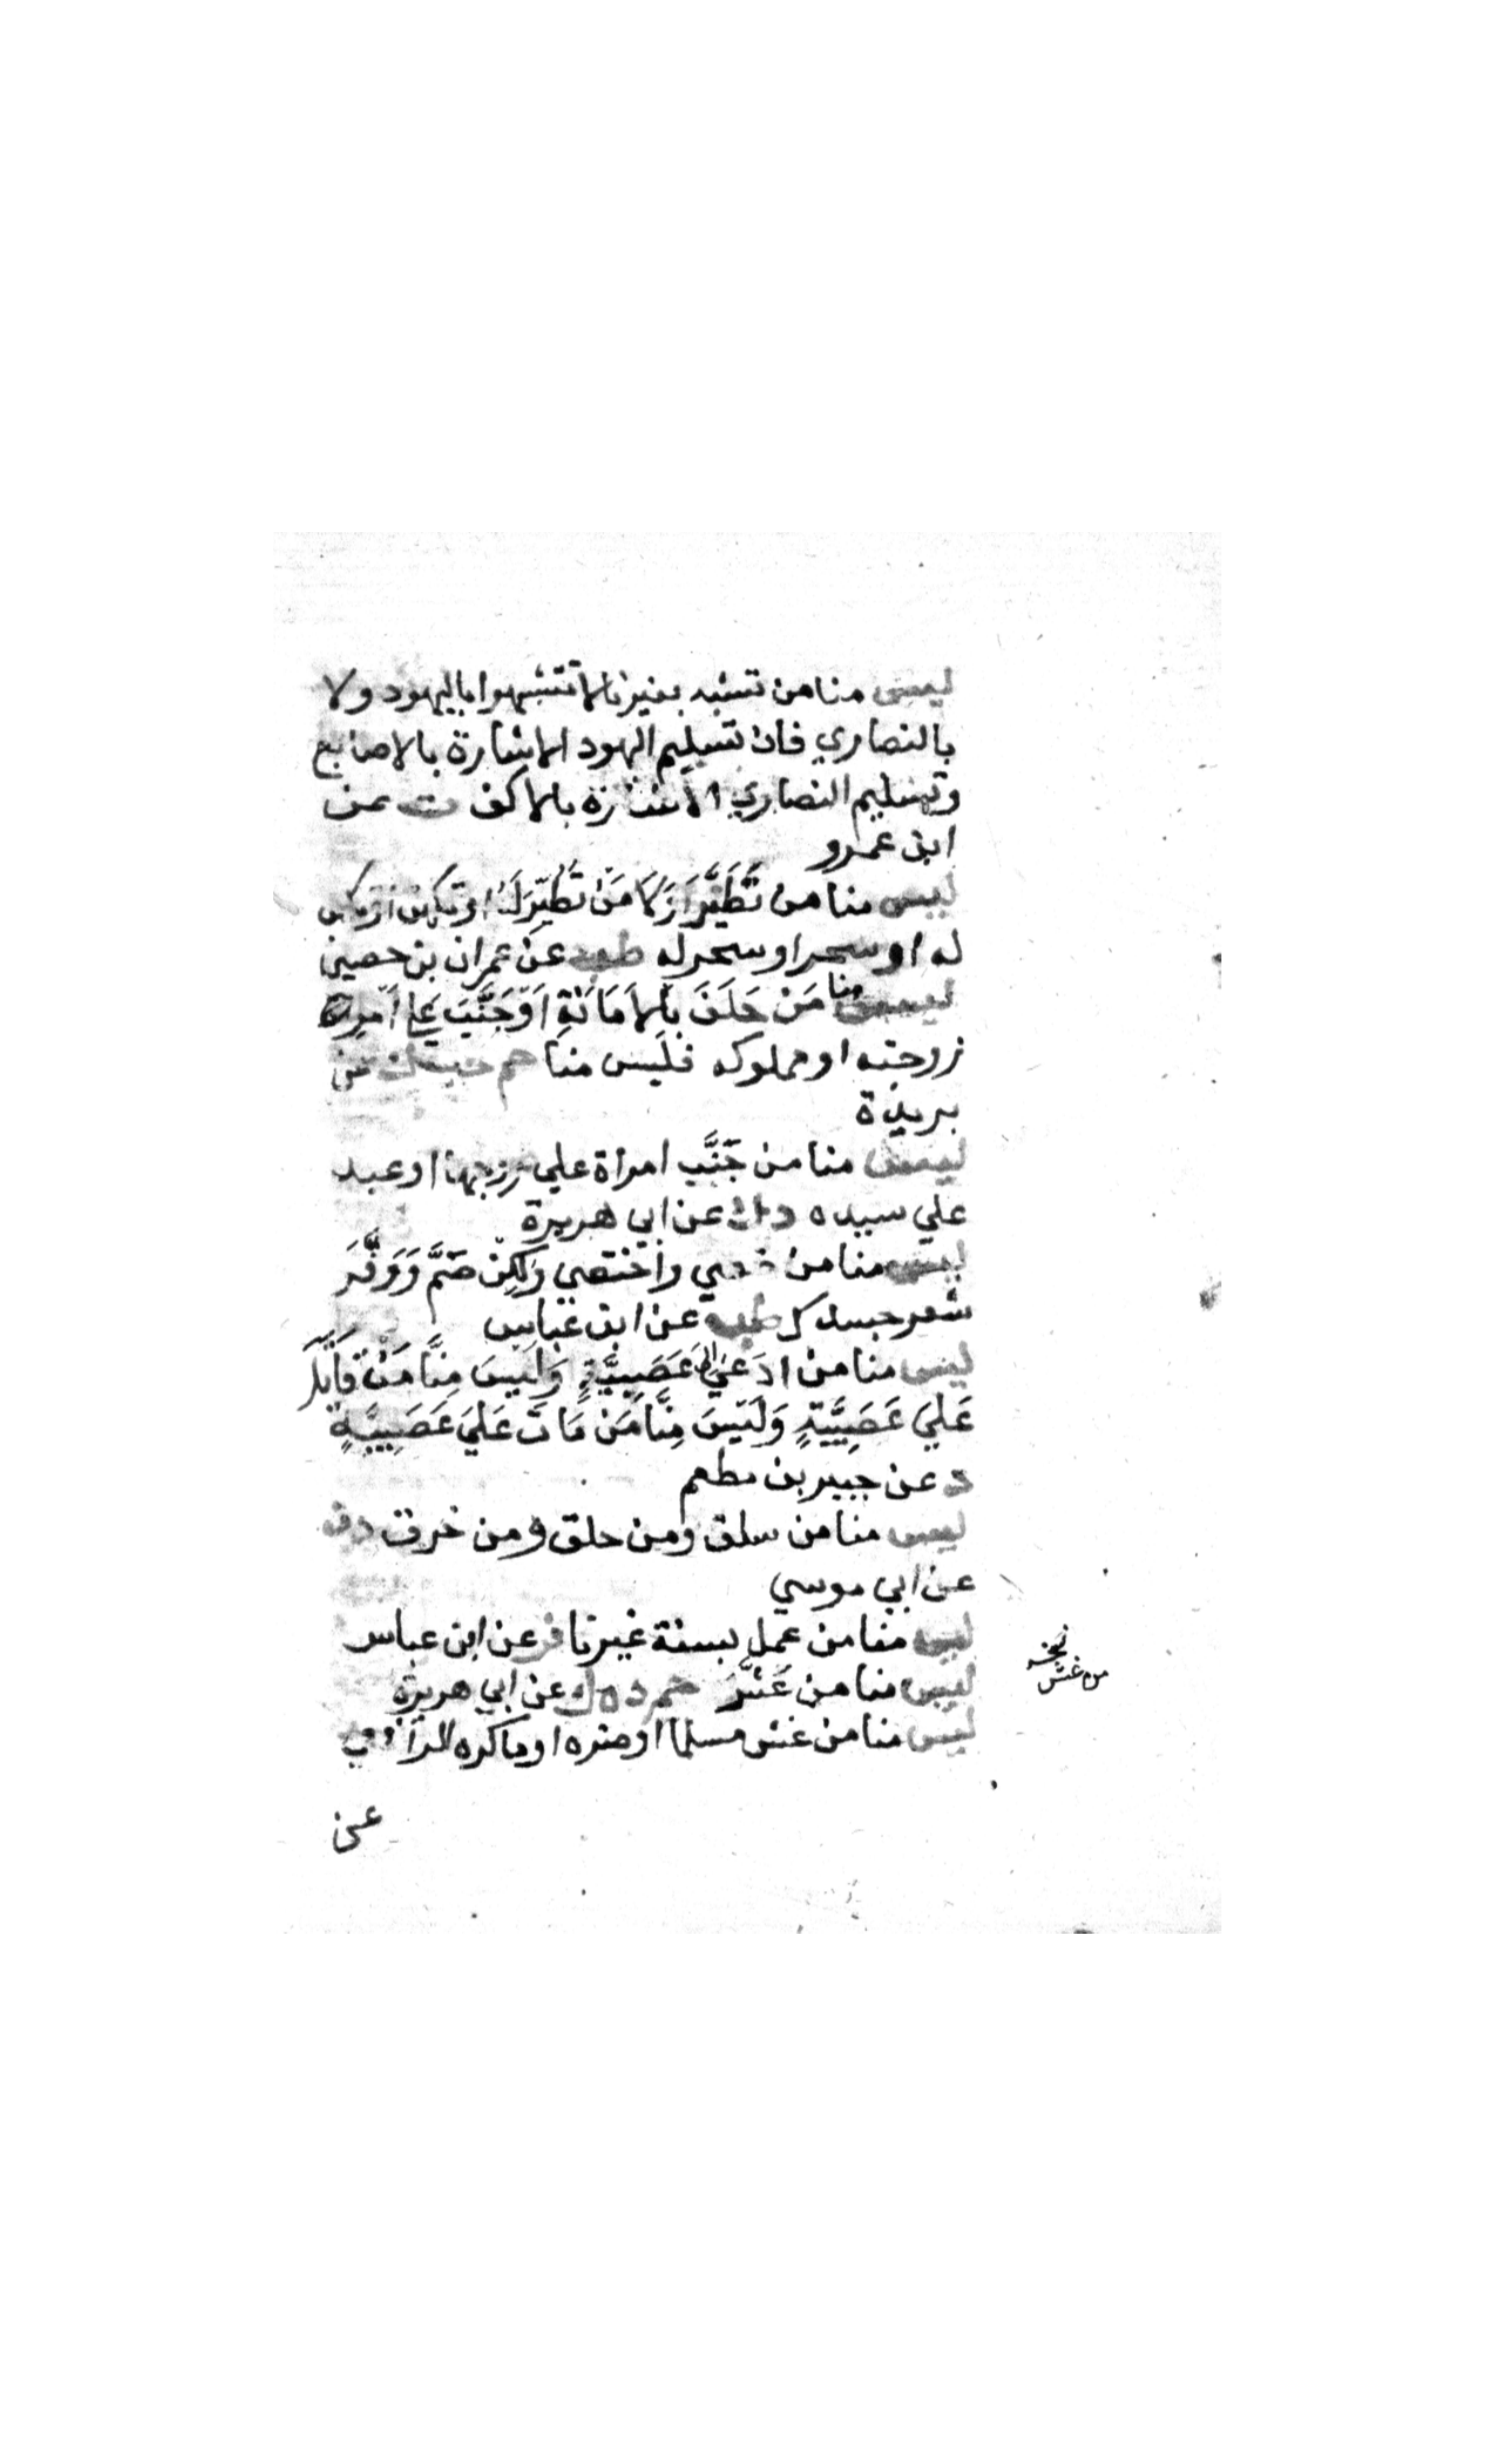 ليس منا من تشبه بغيرنا لا تتشبهوا باليهود ولا
بالنصاري فان تسليم اليهود الاشارة بالاصابع
وتسليم النصاري الاشارة بالاكف ت عن
ابن عمرو
ليس منا من تَطَيَّرَ او تُطُيِّرَ لَهُ او تكهن او تكهن
له او سحر او سحر له طب عن عمران بن حصين
ليس منا مَن حَلَفَ بِالاَمَانَةِ اَوْ جَنَّبَ علي امرئ
زوجته او مملوكه فليس منا حم حب ك عن
بريدة
ليس منا من خَبَّب امراة علي زوجها او عبد
علي سيده د ك عن ابي هريرة
ليس منا من خصي واختصي ولكِنْ صَمَّ وَوَفَّرَ
شعر جسدك طب عن ابن عباس
ليس منا من ادعي الي عَصَبِيَّةٍ وَلَيسَ مِنَّا مَنْ قَاتَلَ
عَلَيَ عَصَبِيَّةٍ وَلَيْسَ مِنَّا مَنْ مَاتَ عَلَيَ عَصَبِيَّةٍ
د عن جبير بن مطعم
ليس منا من سلق ومن حلق ومن خرق د ن
عن ابي موسي
ليس منا من عمل بسنة غيرنا فر عن ابن عباس
ليس منا من غَشَّ حم د ه ك عن ابي هريرة
ليس منا من غش مسلما او ضره او ماكره الرافعي
عن
نسخه
من غش